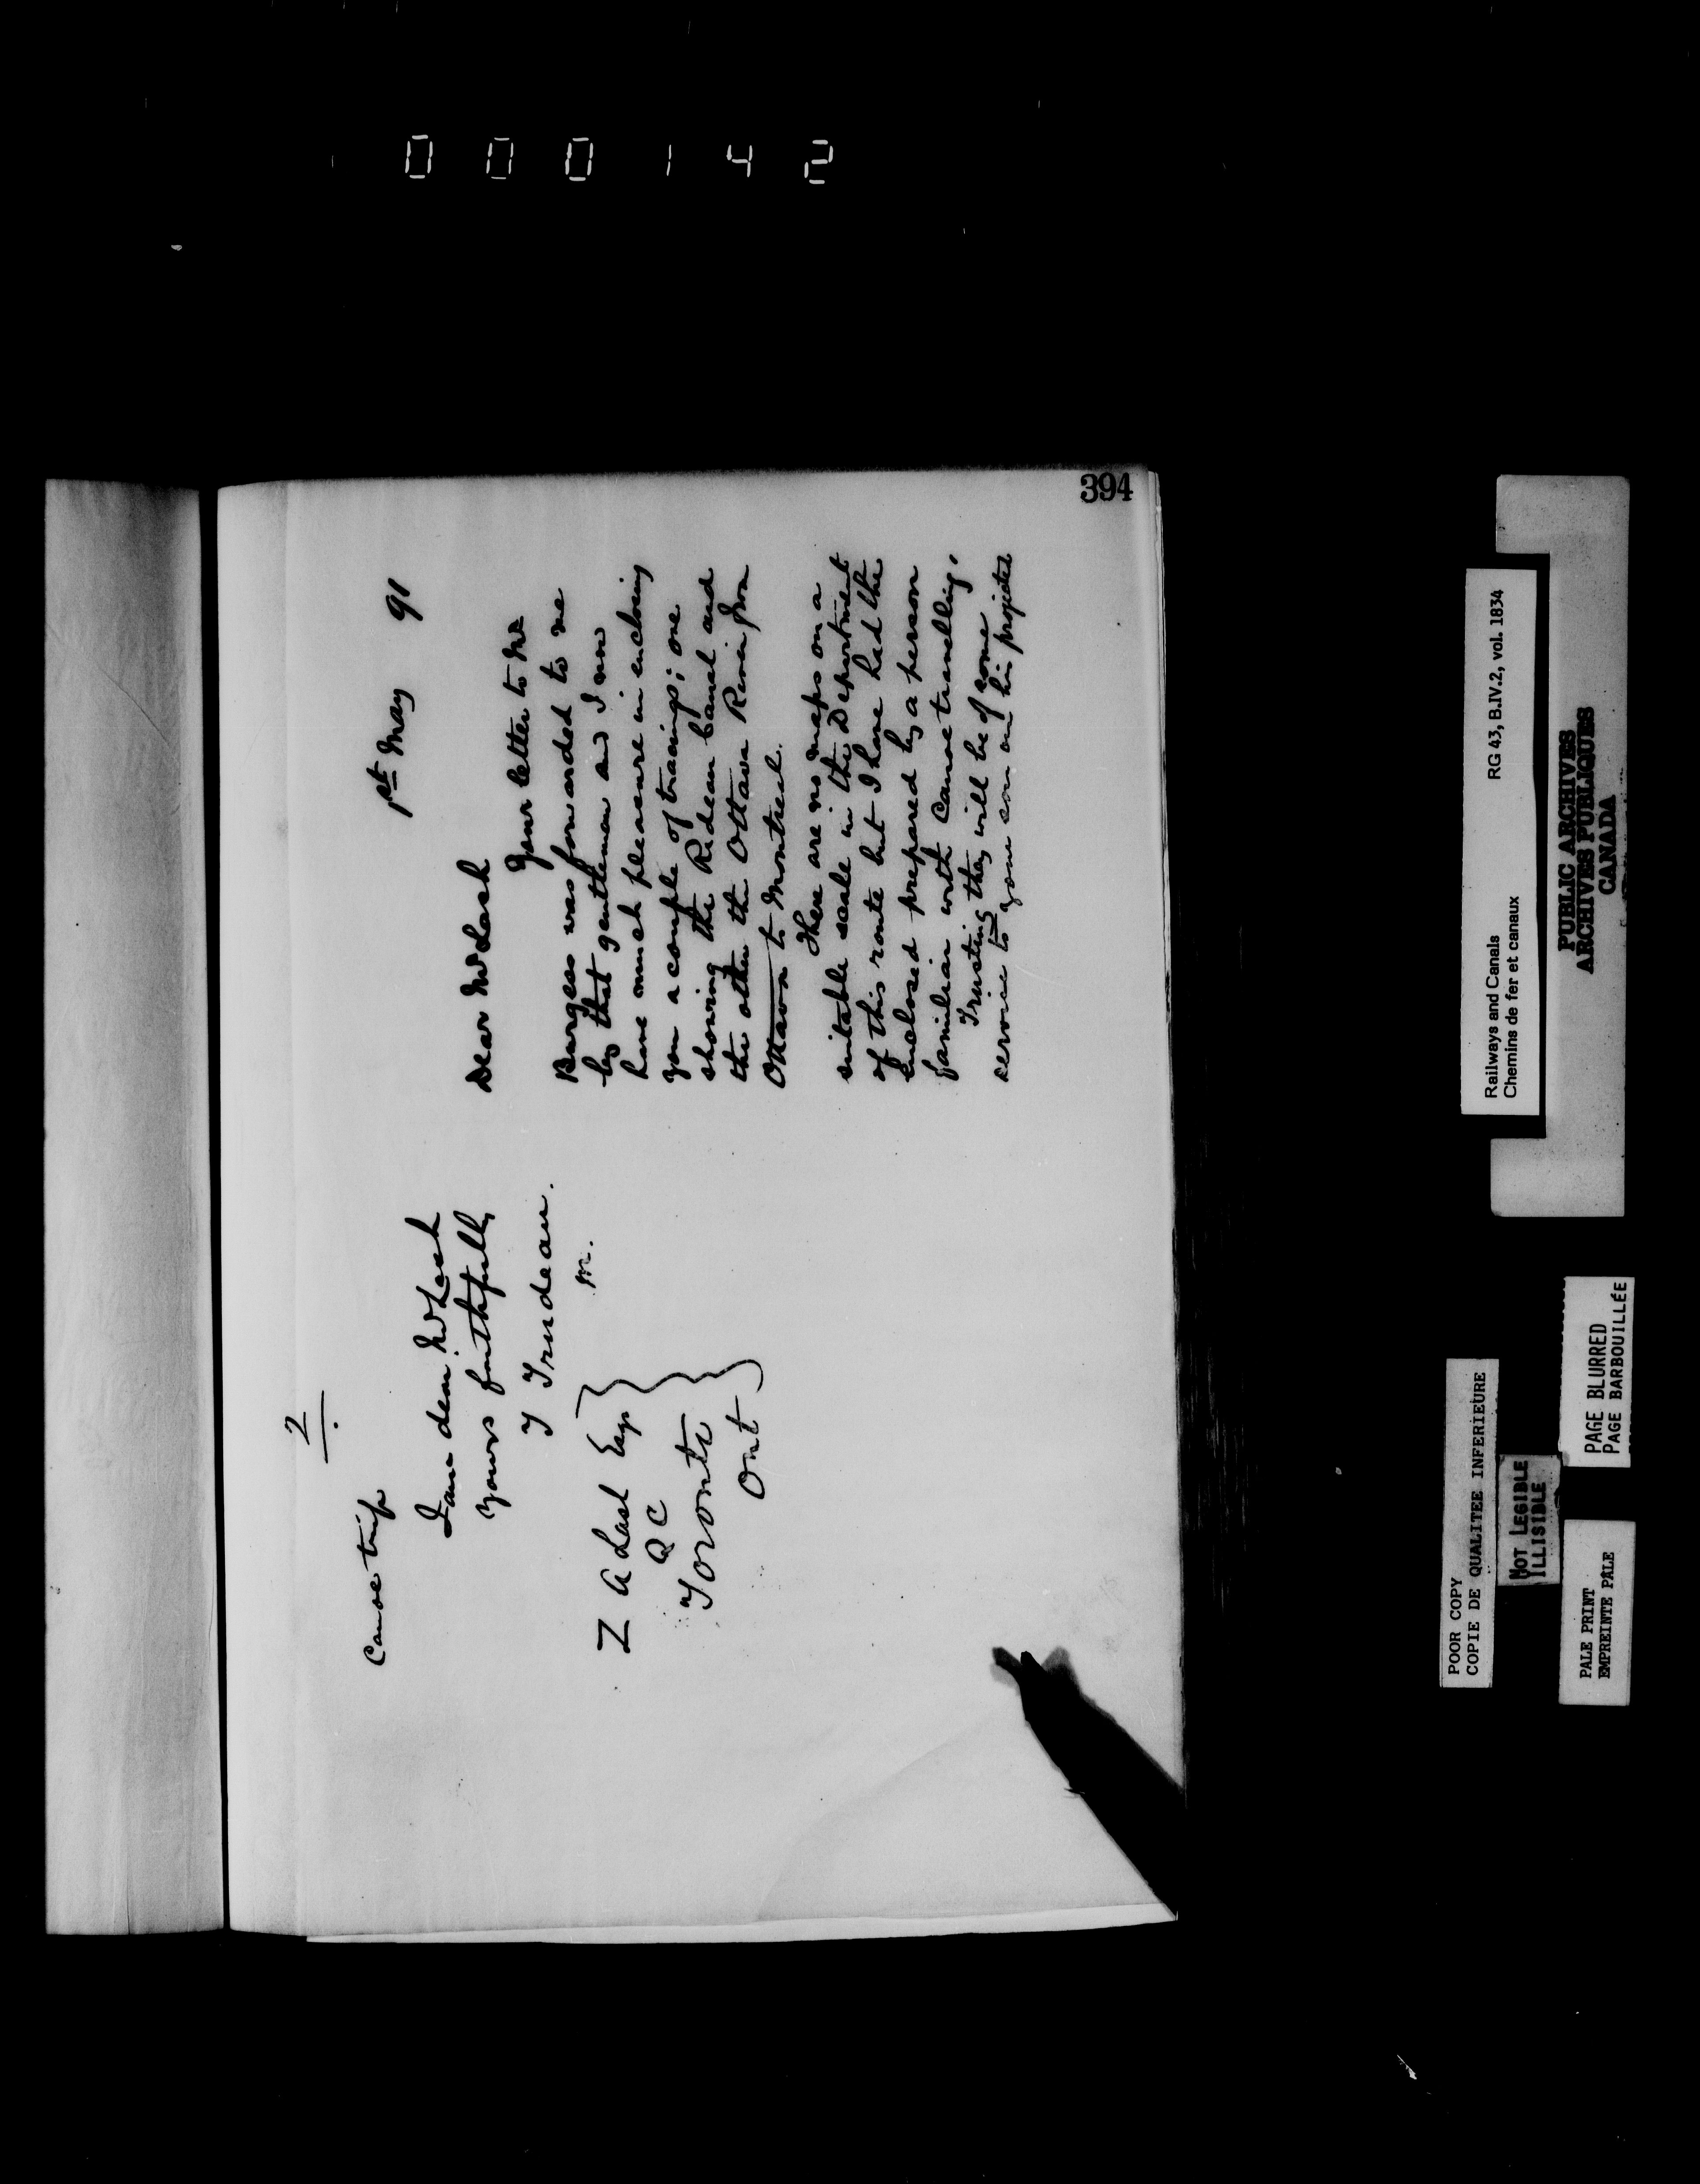 000142
394
1st May 91
Dear Mr Lash
Your letter to Mr
Burgess was forwarded to me
by that gentleman and I now
have much pleasure in enclosing
you a couple of tracings; one
showing the Rideau Canal and
the other the Ottawa River from
Ottawa to Montreal.
There are no maps on a
suitable scale in the Department
of this route but I have had the
enclosed prepared by a person
familiar with Canoe travelling.
Trusting they will be of some
service to your son on his projected
2
Canoe trip
I am dear Mr Lash
Yours faithfully
T Trudeau.
m.
Z A Lash Esqr
Q C
Toronto
Ont
Railways and Canals RG 43, B.IV.2, vol. 1834
Chemins de fer et canaux
PUBLIC ARCHIVES
ARCHIVES PUBLIQUES
CANADA
POOR COPY
COPIE DE QUALITEE INFERIEURE
NOT LEGIBLE
ILLISIBLE
PAGE BLURRED
PAGE BARBOUILLÉE
PALE PRINT
EMPREINTE PÂLE